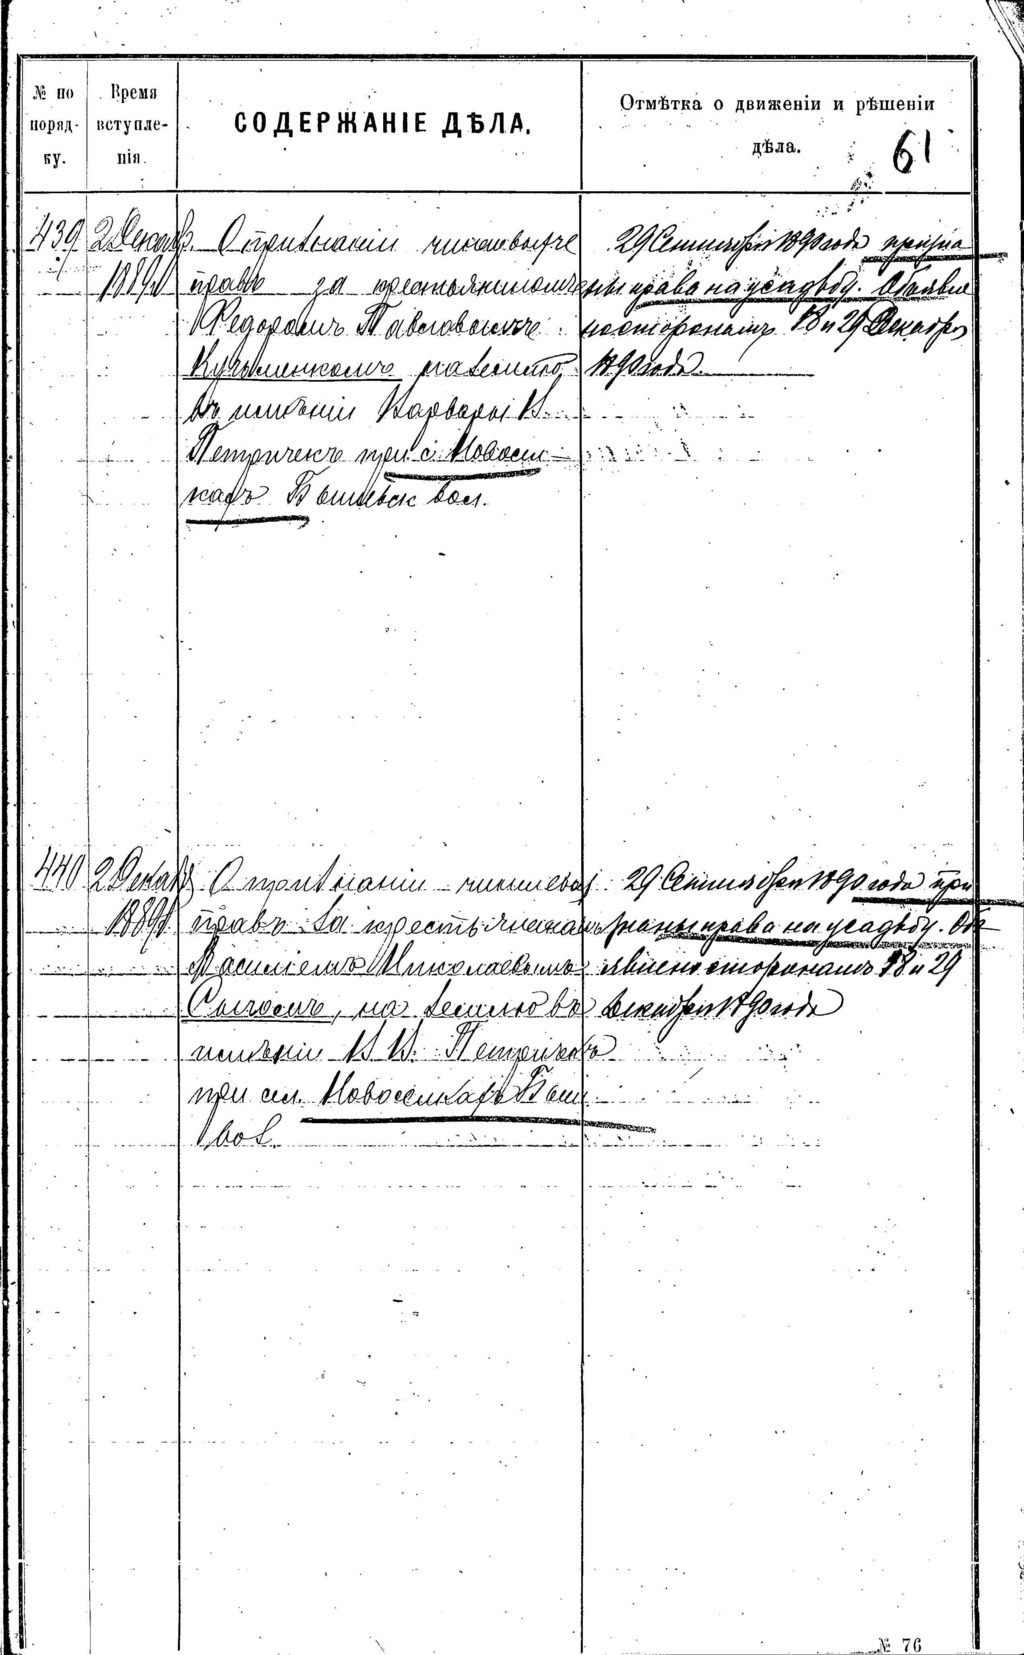 № по порядку.
Время вступленія.
СОДЕРЖАНІЕ ДѢЛА.
Отмѣтка о движеніи и рѣшеніи
дѣла.
61
439
2 Декаб.
1889 г.
О признаніи чиншевыхъ
правъ за крестьяниномъ
Ѳедоромъ Павловымъ
Кузьменкомъ на землю
въ имѣніи Варвары В.
Петричекъ при с. Новосел
кахъ Бышевск вол.
29 Сентября 1890 года призна
ны права на усадьбу. Объявле
но сторонамъ 18 и 29 Декабря
1890 года.
440
2 Декаб
1889 г.
О признаніи чиншевых
правъ за крестьяниномъ
Василіемъ Николаевымъ
на землю въ
имѣніи В. В. Петричекъ
при сел. Новоселкахъ Быш
вол.
29 Сентября 1890 года при
знаны права на усадьбу. Объ
явлено сторонамъ 18 и 29
декабря 1890 года
№ 76